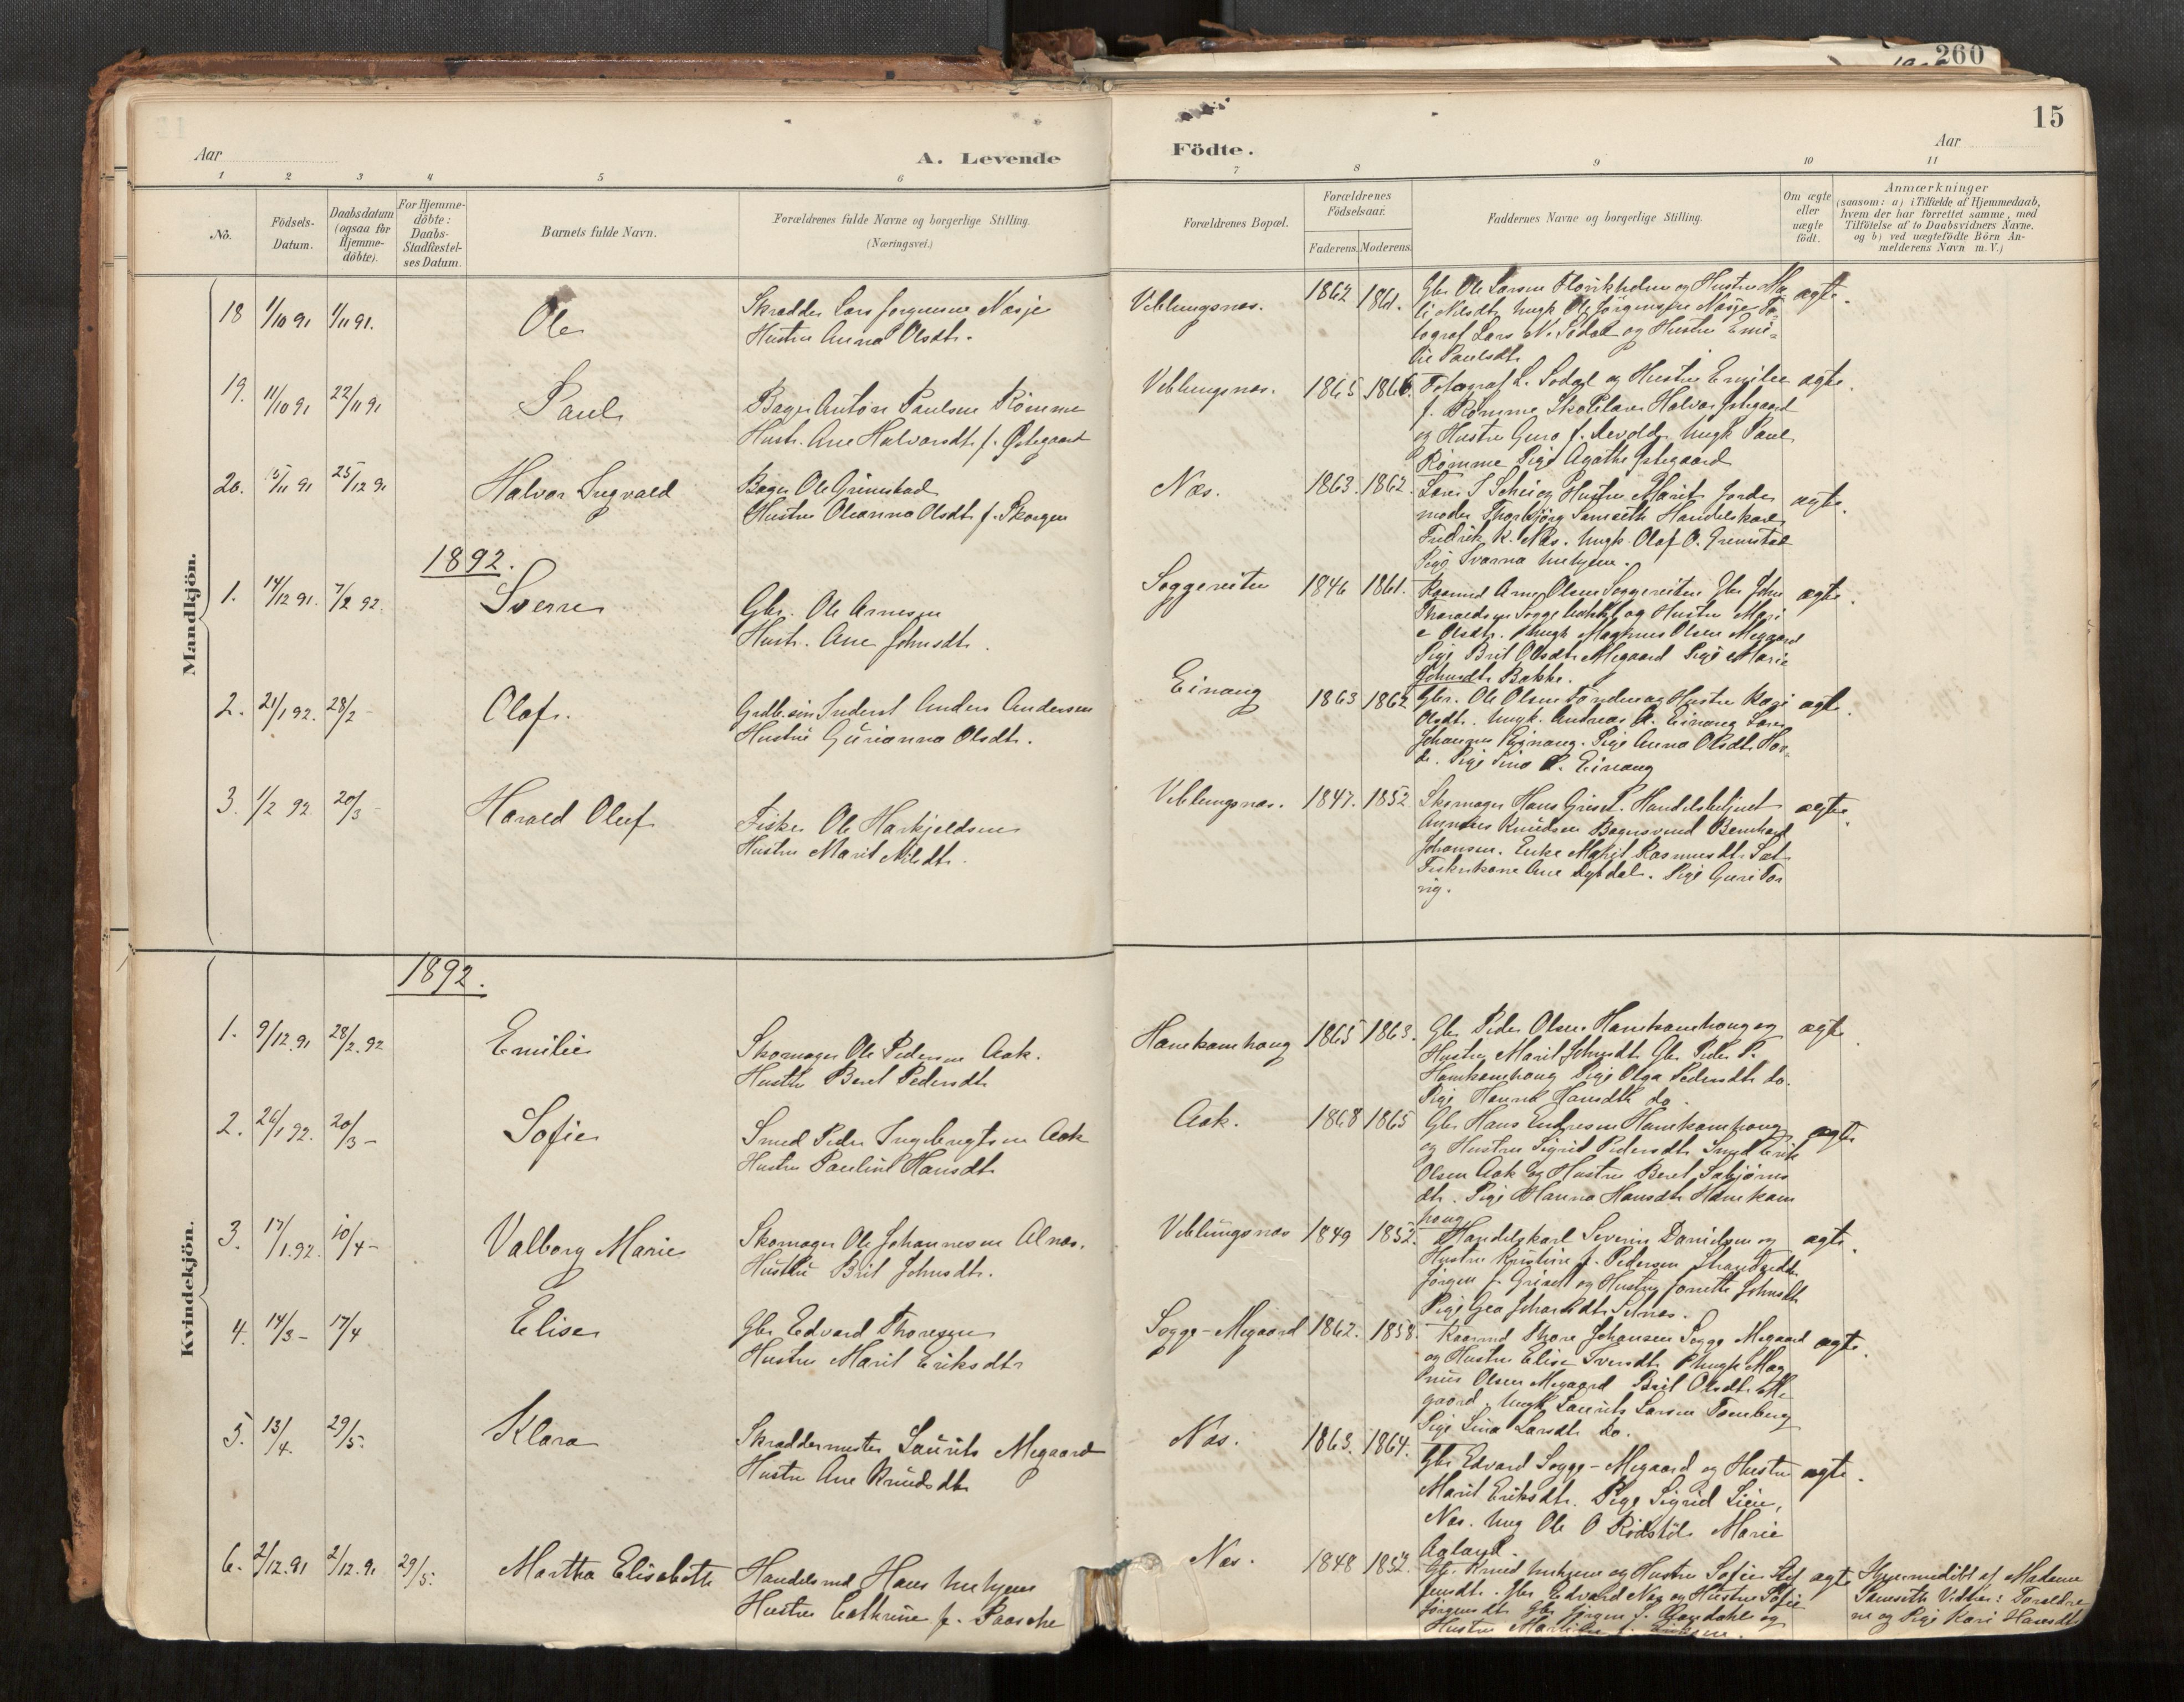 260
15
Aar
A. Levende
Födte.
Aar
1 2 3 4 5 6 7 8 9 10 11
No.
Födsels-Datum.
Daabsdatum (ogsaa for Hjemme-döbte).
For Hjemme-döbte: Daabs-Stadfæstel-ses Datum.
Barnets fulde Navn.
Forældrenes fulde Navne og borgerlige Stilling.
(Næringsvei.)
Forældrenes Bopæl.
Forældrenes Födselsaar.
Faderens. Moderens.
Faddernes Navne og borgerlige Stilling.
Om ægte eller uægte födt.
Anmærkninger
(saasom: a) i Tilfælde af Hjemmedaab,
hvem der har forrettet samme, med
Tilföielse af to Daabsvidners Navne.
og b) ved uægtefödte Börn An-
melderens Navn m. V.)
Mandkjön.
18 1/10 91 1/11 91. Ole
Skrædder Lars Jørgensen Næsje
Hustru Anna Olsdtr.
Veblungsnæs. 1862 1861.
Gbr Ole Larsen
og Hustru
Lars N. Sødal og Hustru Emi-
lie Paulsdtr
ægte.
19. 11/10 91 22/11 91 Paul
Bager Anton Paulsen Rømme
Hustr. Ane Halvorsdtr f. Østegaard
Veblungsnæs. 1865 1866.
Fotograf L. Sødal og Hustru Emilie
f. Rømme Skolelærer Halvor Østegaard
og Hustru Guro f. Ungk Paul
Rømme Pige Agathe Østegaard
ægte.
20. 15/11 91 25/12 91 Halvor Ingvald
Bager Ole Grimstad
Hustru Oleanna Olsdtr f. Skorgen
Næs. 1863. 1862.
og Hustru Marit Jorde
moder Thorbjørg Handelskarl
Fredrik K. Næs. Ungk. Olaf O. Grimstad
Pige
ægte.
1892.
1. 14/12 91. 7/2 92. Sverre
Gbr. Ole Arnesen
Hustr. Ane Johnsdtr.
Soggereiten 1846 1861.
Kaarmd Arne Olsen Soggereiten Gbr John
og Hustru Mari
e Olsdtr. Ungk Magnus Olsen Megaard
Pige Brit Olsdtr Megaard Pige Marie
Johnsdtr Bakke.
ægte.
2. 21/1 92. 28/2 - Olaf.
Anders Andersen
Hustru Gurianna Olsdtr.
Einang 1863 1862
Gbr. Ole Olsen og Hustru Kari
Olsdtr. Ungk. Andreas A. Einang
Johannes Pige Anna Olsdtr Hov-
de. Pige Einang
ægte.
3. 1/2 92 20/3 - Harald Oluf
Fisker Ole Harkjeldsen
Hustru Marit Nilsdtr.
Veblungsnæs. 1847. 1852.
Skomager Hans Griset. Handelsbetjent
Knudsen Bagersvend Bernhard
Johansen. Enke Marit Rasmusdtr Sæt
Fiskerkone Ane Pige Guri Tor
vig.
ægte.
Kvindekjön.
1892.
1. 9/12.91 28/2.92 Emilie
Skomager Ole Pedersen Aak.
Hustru Beret Pedersdtr
Hanekamhoug 1865 1863.
Gbr Peder Olsen Hanekamhoug og
Hustru Marit Johnsdtr Gbr Peder P.
Hanekamhoug Pige Olga Pedersdtr do.
Pige Hanna Hansdtr do.
ægte
2. 26/1 92. 20/3 - Sofie
Smed Peder Ingebrigtsen Aak
Hustru Pauline Hansdtr
Aak. 1868 1865
Gbr Hans Endresen Hanekamhoug
og Hustru Sigrid Pedersdtr Smed Erik
Olsen Aak og Hustru Beret
dtr. Pige Hanna Hansdtr Hanekam
houg
ægte
3. 17/1.92. 10/4 - Valborg Marie
Skomager Ole Johannesen Alnæs.
Hustru Brit Johnsdtr.
Veblungsnæs 1849 1852.
Handelskarl Severin Danielsen og
Hustru Kristine f. Pedersen
Jørgen J. Griset og Hustru Jonette Johnsdtr
Pige Gea
ægte.
4. 14/3 - 17/4 Elise
Gbr Edvard Thoresen
Hustru Marit Eriksdtr
Sogge-Megaard 1862. 1858.
Kaarmd Thore Johansen Sogge Megaard
og Hustru Elise Ungk Mag
nus Olsen Megaard Brit Olsdtr Me
gaard. Ungk Laurits Larsen Tomberg
Pige Lina Larsdtr do.
ægte.
5. 13/4. 29/5. Klara
Skræddermester Laurits Megaard
Hustru Ane Knudsdtr
Næs. 1863. 1864.
Gbr Edvard Sogge-Megaard og Hustru
Marit Eriksdtr. Pige Sigrid Lien,
Næs. Ung Ole O Rødstøl Marie
Aaland.
ægte.
6. 2/12.91 2/12.91 29/5. Martha Elisabeth
Handelsmd Hans Unhjem
Hustru Cathrine f. Paasche
Næs. 1848 1852.
Gbr. Knud Unhjem og Hustru Sofie
Gbr Edvard Næs og Hustru Sofie
Jørgensdtr Gbr Jørgen og
Hustru
ægte
Hjemmedöbt af Madame
Samseth Vidner: Forældre
ne og Pige Kari Hansdtr